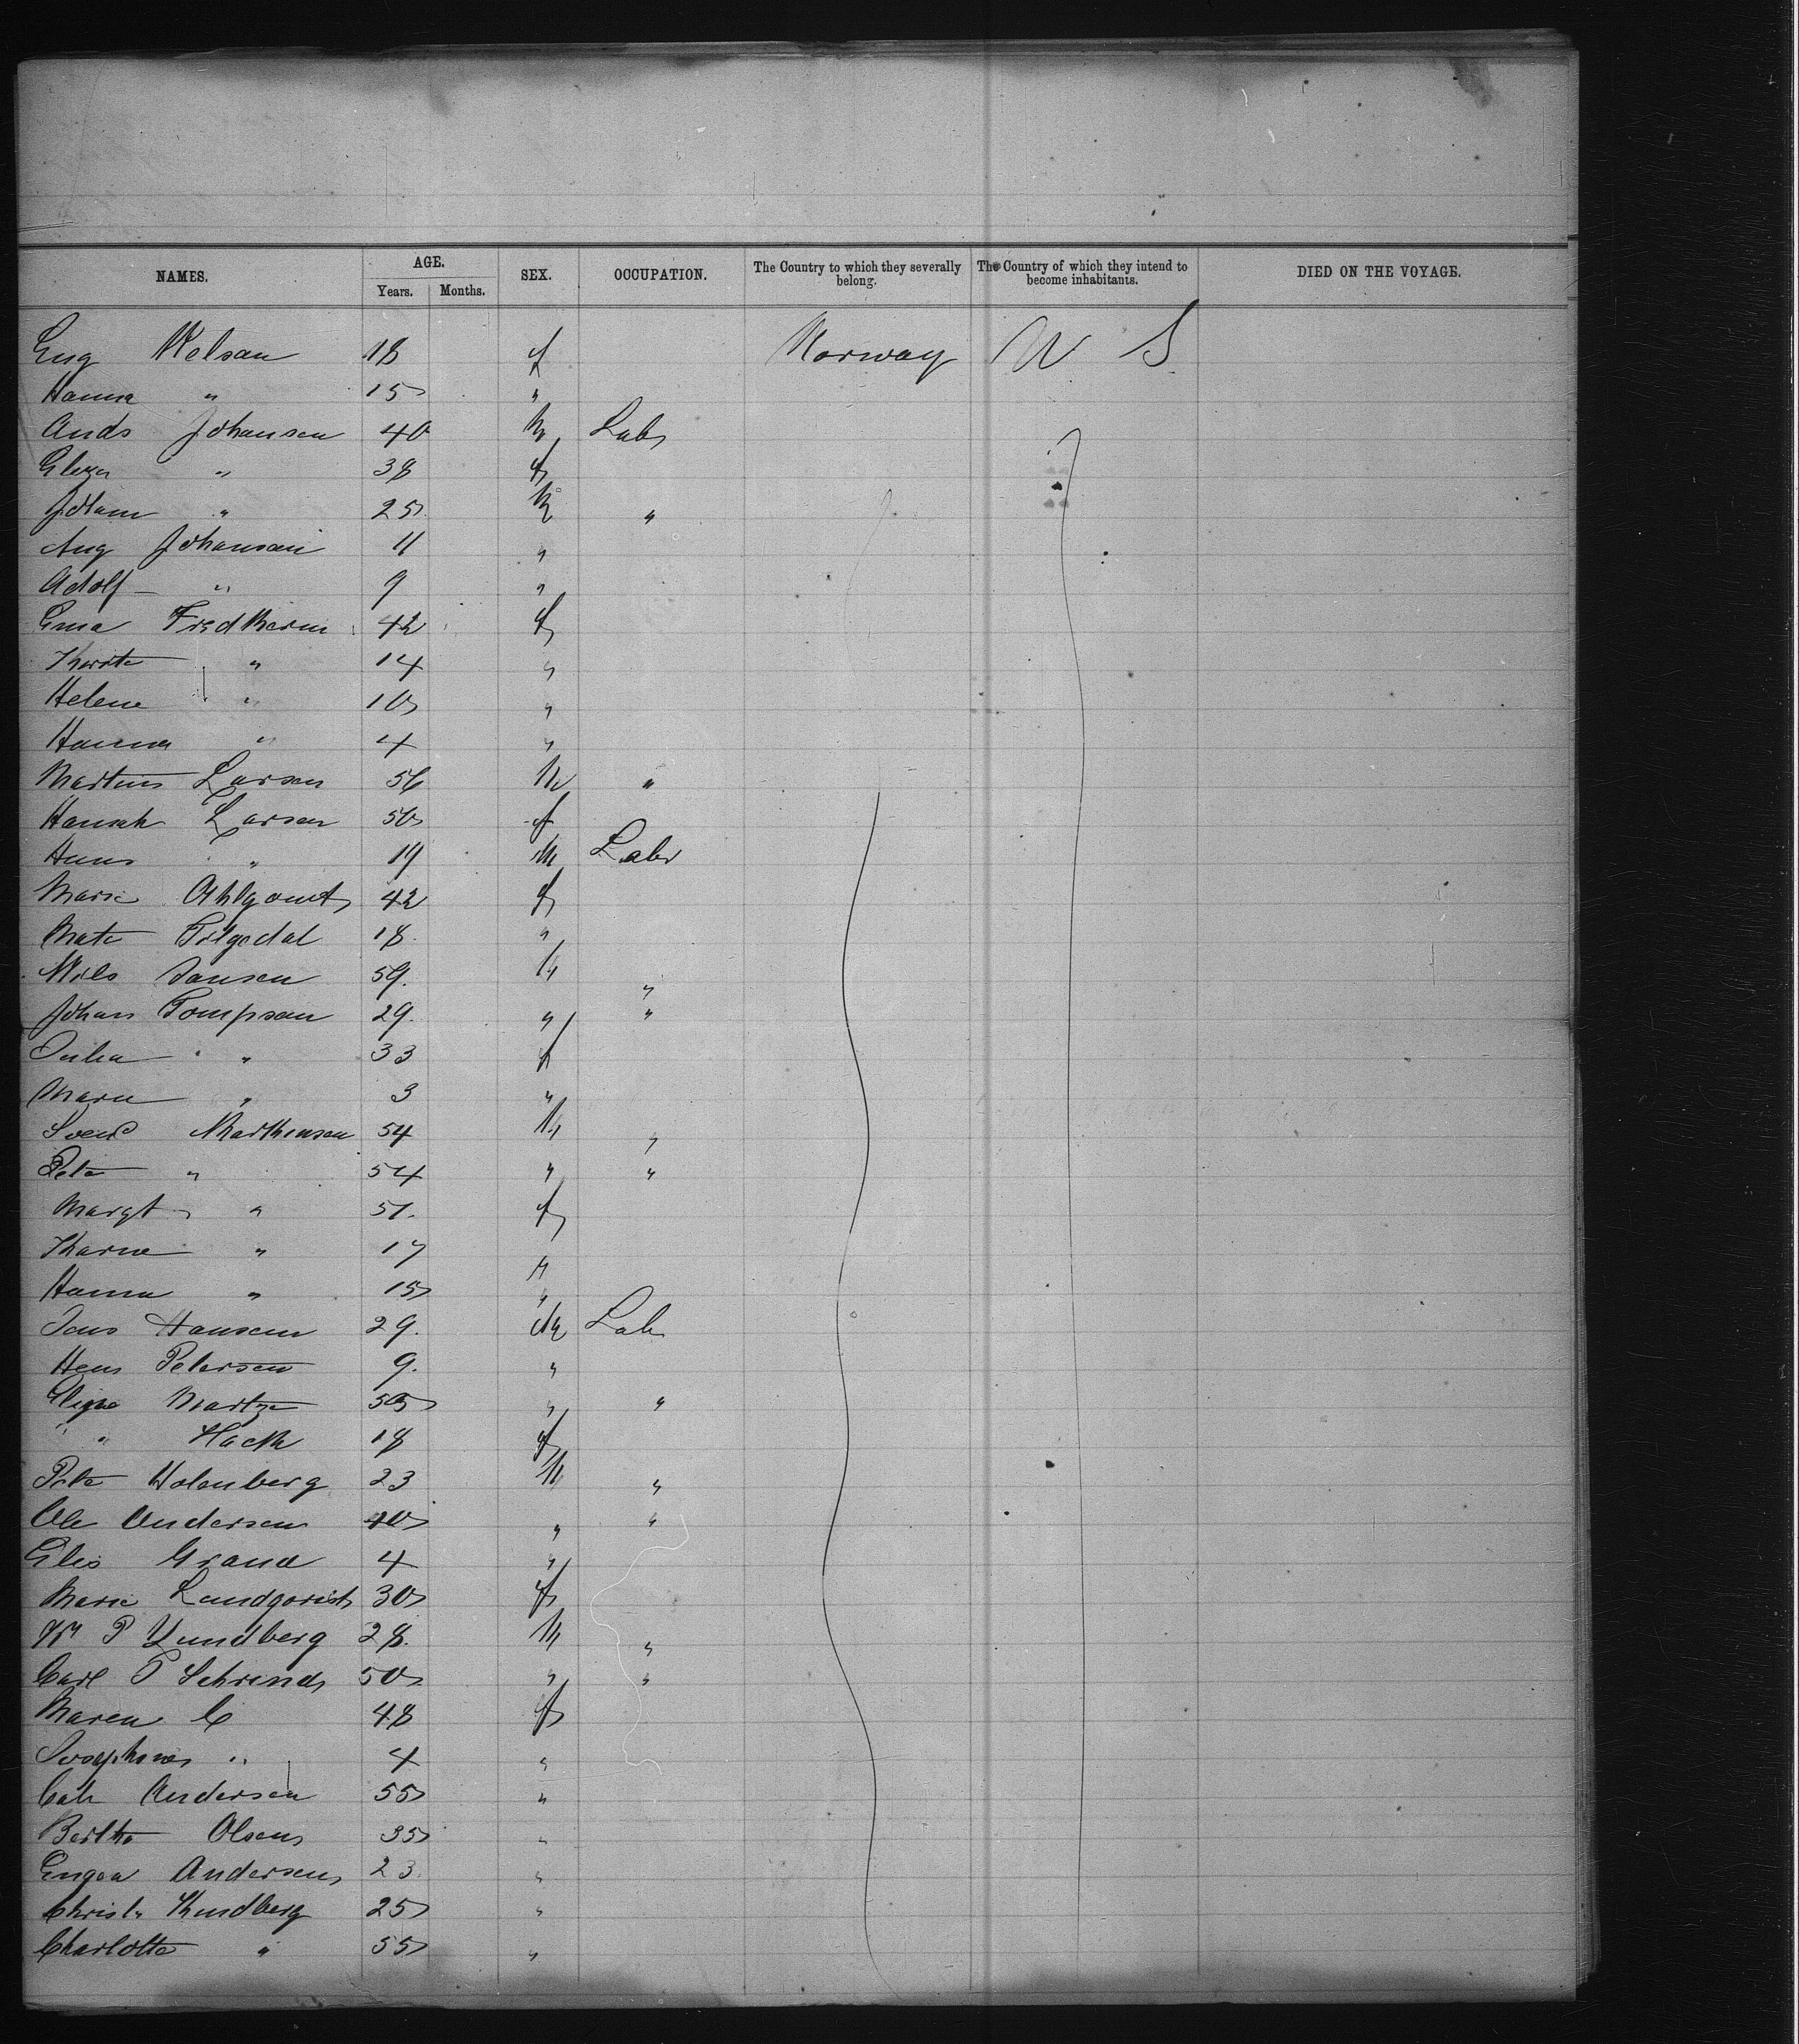 NAMES. AGE. SEX. OCCUPATION. The Country to which they severally belong. The Country of which they intend to become inhabitants. DIED ON THE VOYAGE.
Years. Months.
Eug Nelson 18 f Norway U S
Hanna " 15 "
Ands Johansen 40 M Lab
38 f
Johan " 25 M "
Aug Johansen 11 "
Adolf " 9 "
42 f
14 "
Helene " 10 "
Hanna " 4 "
Martins Larsen 56 M "
Hannah Larsen 50 f
Hans " 19 M Labr
Marie 42 f
18 "
Nils Jansen 59 M "
Johan Tompson 29 " "
Julia " 33 f
Marie " 3 "
Svend Markensen 54 M "
Pete " 54 " "
Margt " 51 f
Karne " 17 "
Hanna " 15 "
Jens Hansen 29 M Lab
Hens Petersen 9 "
55 " "
" Hack 18 f
Pete Holenberg 23 M "
Ole Andersen 40 " "
Elis 4 "
Marie Landqvist 30 f
P Lundberg 28 M "
Carl P 50 " "
Maren C 48 f
Josephine " 4 "
Cath Andersen 55 "
Bertha Olsen 35 "
Andersen 23 "
Christ 25 "
Charlotte " 55 "